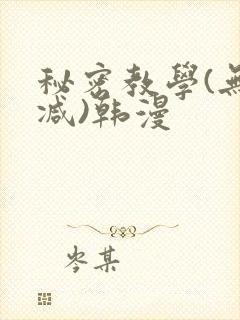 秘密教學(無
减)韩漫
岑某